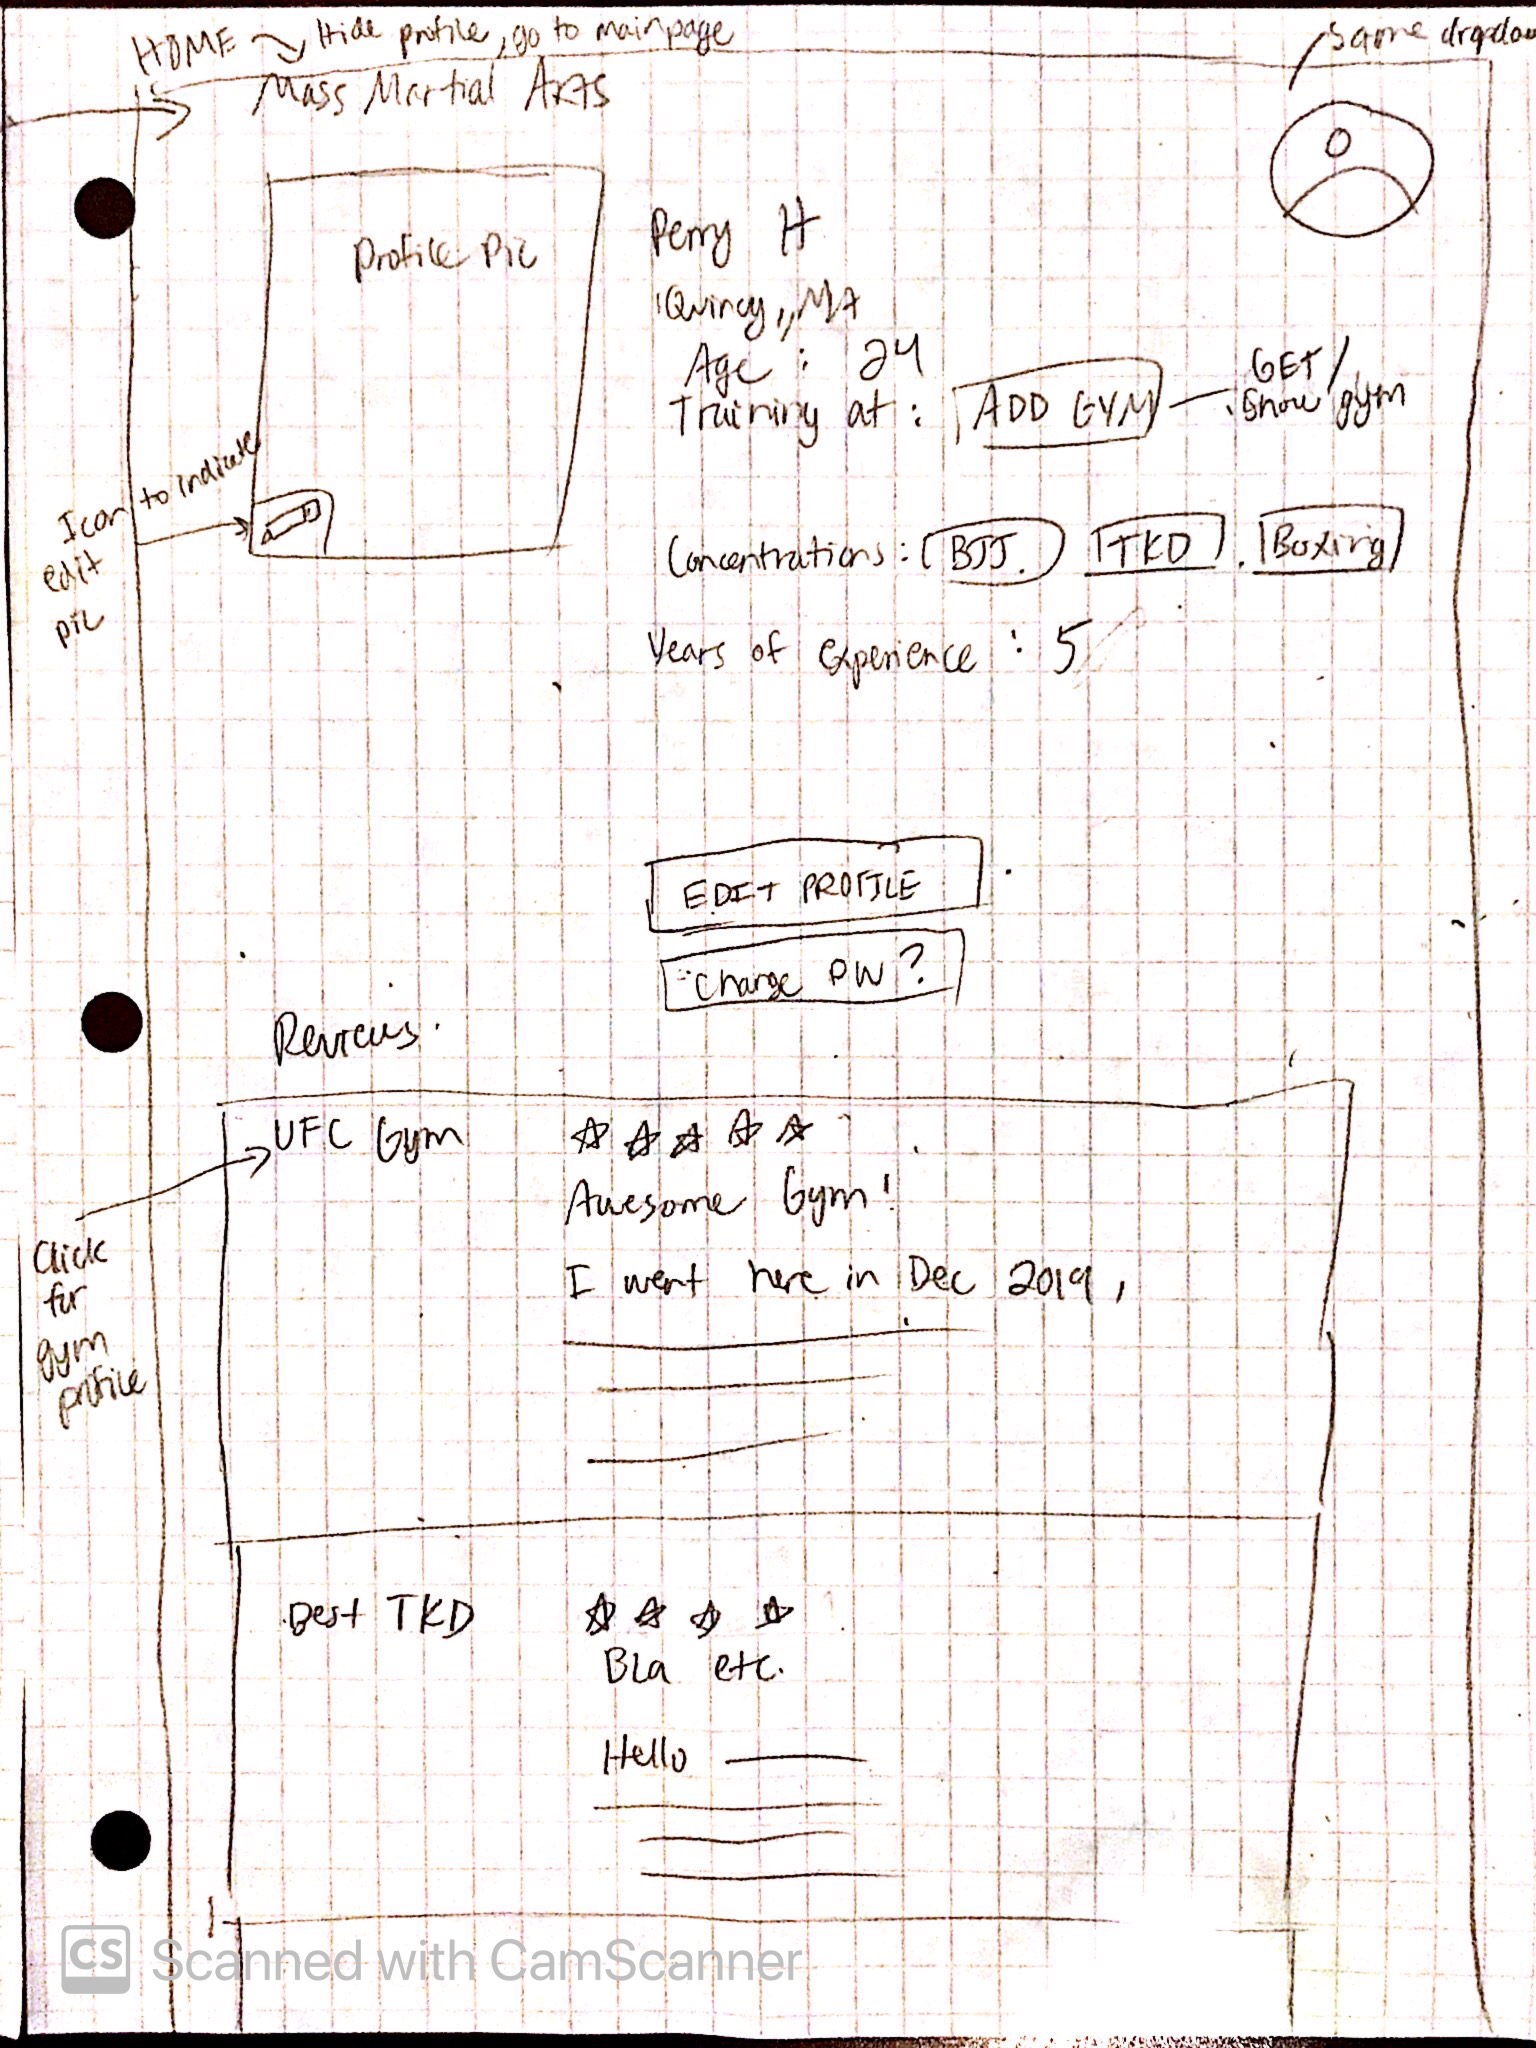 HOME Hide profile, go to mainpage
same dropdow
Mass Martial Arts
Profile Pic
Perry H
Quincy, MA
Age : 24
Training at : ADD GYM
GET/
show gym
Icon to indicate
edit
pic
Concentrations : BJJ. TKD Boxing
Years of experience : 5
EDIT PROFILE
Change PW ?
Reviews.
UFC Gym
Awesome Gym!
I went here in Dec 2019,
Click
for
gym
profile
Best TKD
Bla etc.
Hello
CS Scanned with CamScanner